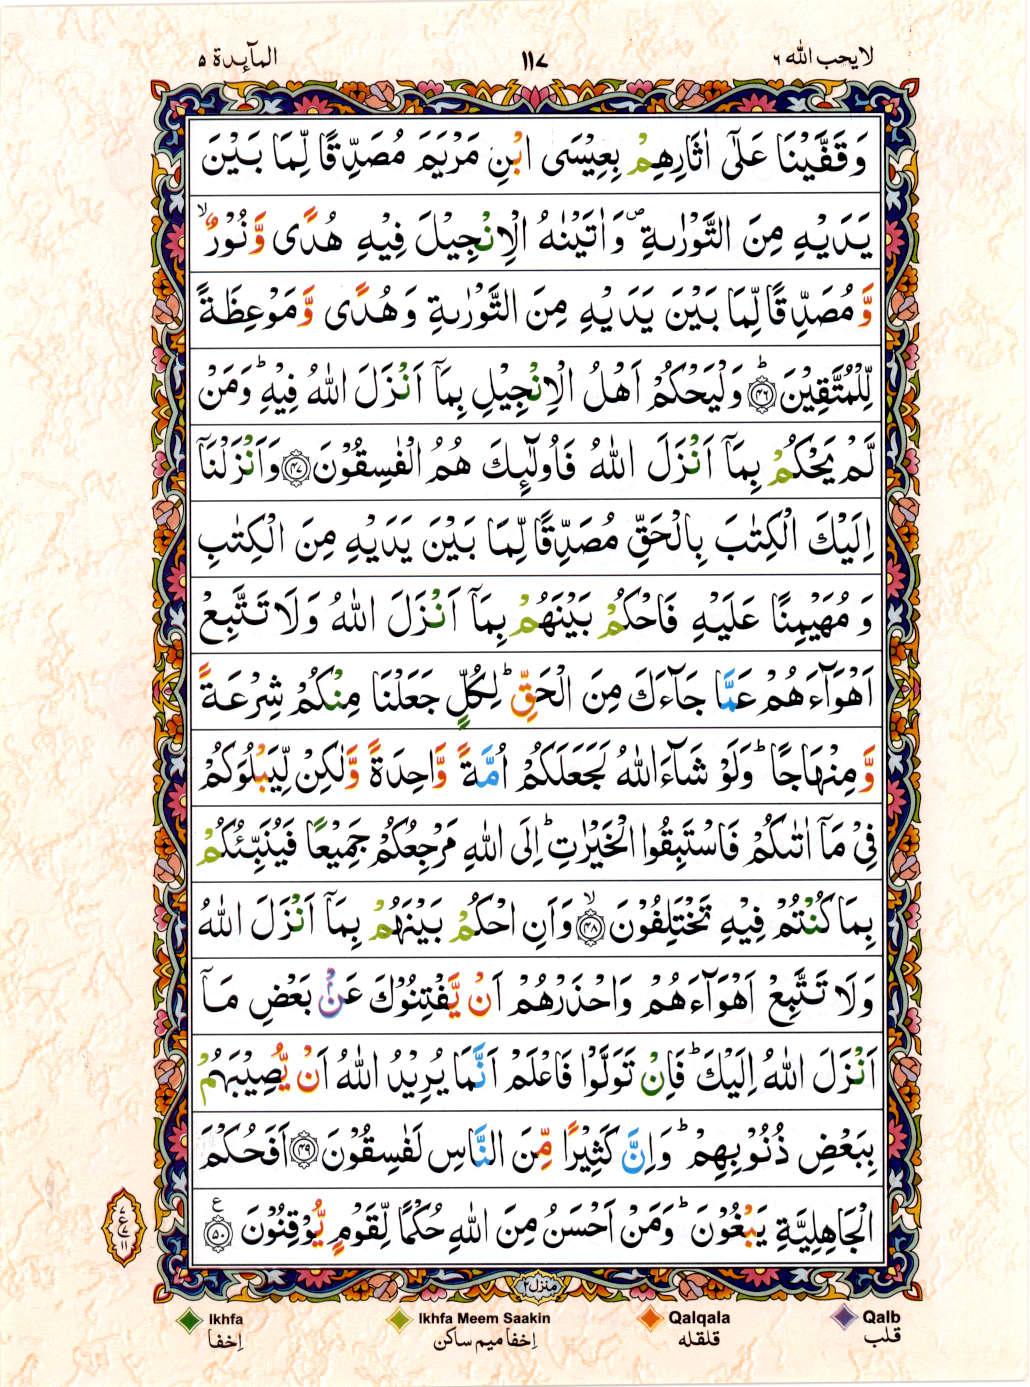 المآئدة ٥
١١٧
لا يحب الله ٦
وَقَفَّيْنَا عَلٰۤى اٰثَارِهِمْ بِعِيْسَى ابْنِ مَرْيَمَ مُصَدِّقًا لِّمَا بَيْنَ
يَدَيْهِ مِنَ التَّوْرٰىةِ ۪ وَاٰتَيْنٰهُ الْاِنْجِيْلَ فِيْهِ هُدًى وَّنُوْرٌ ۙ
وَّمُصَدِّقًا لِّمَا بَيْنَ يَدَيْهِ مِنَ التَّوْرٰىةِ وَهُدًى وَّمَوْعِظَةً
لِّلْمُتَّقِيْنَ ؕ ﴿٤٦﴾ وَلْيَحْكُمْ اَهْلُ الْاِنْجِيْلِ بِمَاۤ اَنْزَلَ اللّٰهُ فِيْهِ ؕ وَمَنْ
لَّمْ يَحْكُمْ بِمَاۤ اَنْزَلَ اللّٰهُ فَاُولٰٓئِكَ هُمُ الْفٰسِقُوْنَ ﴿٤٧﴾ وَاَنْزَلْنَاۤ
اِلَيْكَ الْكِتٰبَ بِالْحَقِّ مُصَدِّقًا لِّمَا بَيْنَ يَدَيْهِ مِنَ الْكِتٰبِ
وَمُهَيْمِنًا عَلَيْهِ فَاحْكُمْ بَيْنَهُمْ بِمَاۤ اَنْزَلَ اللّٰهُ وَلَا تَتَّبِعْ
اَهْوَآءَهُمْ عَمَّا جَآءَكَ مِنَ الْحَقِّ ؕ لِكُلٍّ جَعَلْنَا مِنْكُمْ شِرْعَةً
وَّمِنْهَاجًا ؕ وَلَوْ شَآءَ اللّٰهُ لَجَعَلَكُمْ اُمَّةً وَّاحِدَةً وَّلٰكِنْ لِّيَبْلُوَكُمْ
فِيْ مَاۤ اٰتٰىكُمْ فَاسْتَبِقُوا الْخَيْرٰتِ ؕ اِلَى اللّٰهِ مَرْجِعُكُمْ جَمِيْعًا فَيُنَبِّئُكُمْ
بِمَا كُنْتُمْ فِيْهِ تَخْتَلِفُوْنَ ۙ ﴿٤٨﴾ وَاَنِ احْكُمْ بَيْنَهُمْ بِمَاۤ اَنْزَلَ اللّٰهُ
وَلَا تَتَّبِعْ اَهْوَآءَهُمْ وَاحْذَرْهُمْ اَنْ يَّفْتِنُوْكَ عَنْۢ بَعْضِ مَاۤ
اَنْزَلَ اللّٰهُ اِلَيْكَ ؕ فَاِنْ تَوَلَّوْا فَاعْلَمْ اَنَّمَا يُرِيْدُ اللّٰهُ اَنْ يُّصِيْبَهُمْ
بِبَعْضِ ذُنُوْبِهِمْ ؕ وَاِنَّ كَثِيْرًا مِّنَ النَّاسِ لَفٰسِقُوْنَ ﴿٤٩﴾ اَفَحُكْمَ
الْجَاهِلِيَّةِ يَبْغُوْنَ ؕ وَمَنْ اَحْسَنُ مِنَ اللّٰهِ حُكْمًا لِّقَوْمٍ يُّوْقِنُوْنَ ﴿٥٠﴾ ع
٧
ع
٧
١١
منزل ٢
Ikhfa Ikhfa Meem Saakin Qalqala Qalb
اِخفا اِخفا میم ساکن قلقله قلب